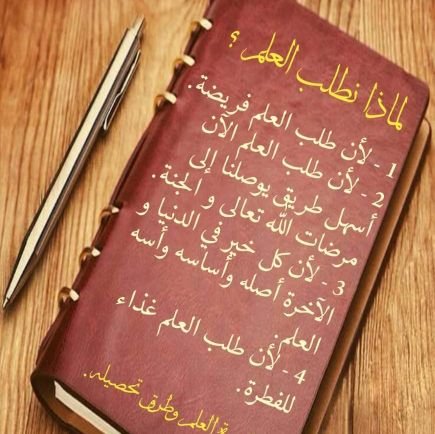 لماذا نطلب العلم ؟
1 - لأن طلب العلم فريضة.
2 - لأن طلب العلم الآن
أسهل طريق يوصلنا إلى
مرضات الله تعالى و الجنة.
3 - لأن كل خير في الدنيا و
الآخرة أصله وأساسه وأسه
العلم.
4 - لأن طلب العلم غذاء
للفطرة.
العلم وطرق تحصيله.